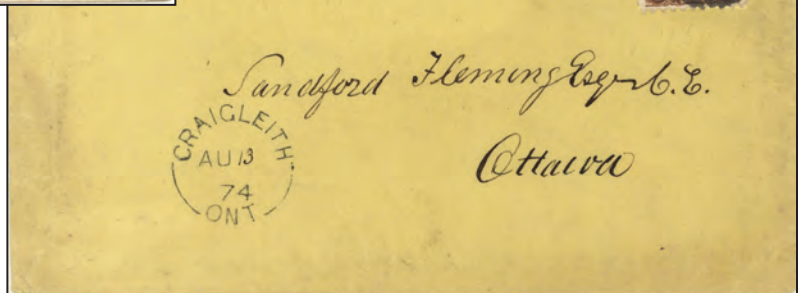 Sandford Fleming Esqr C.E.
Ottawa
CRAIGLEITH
AU 13
74
ONT